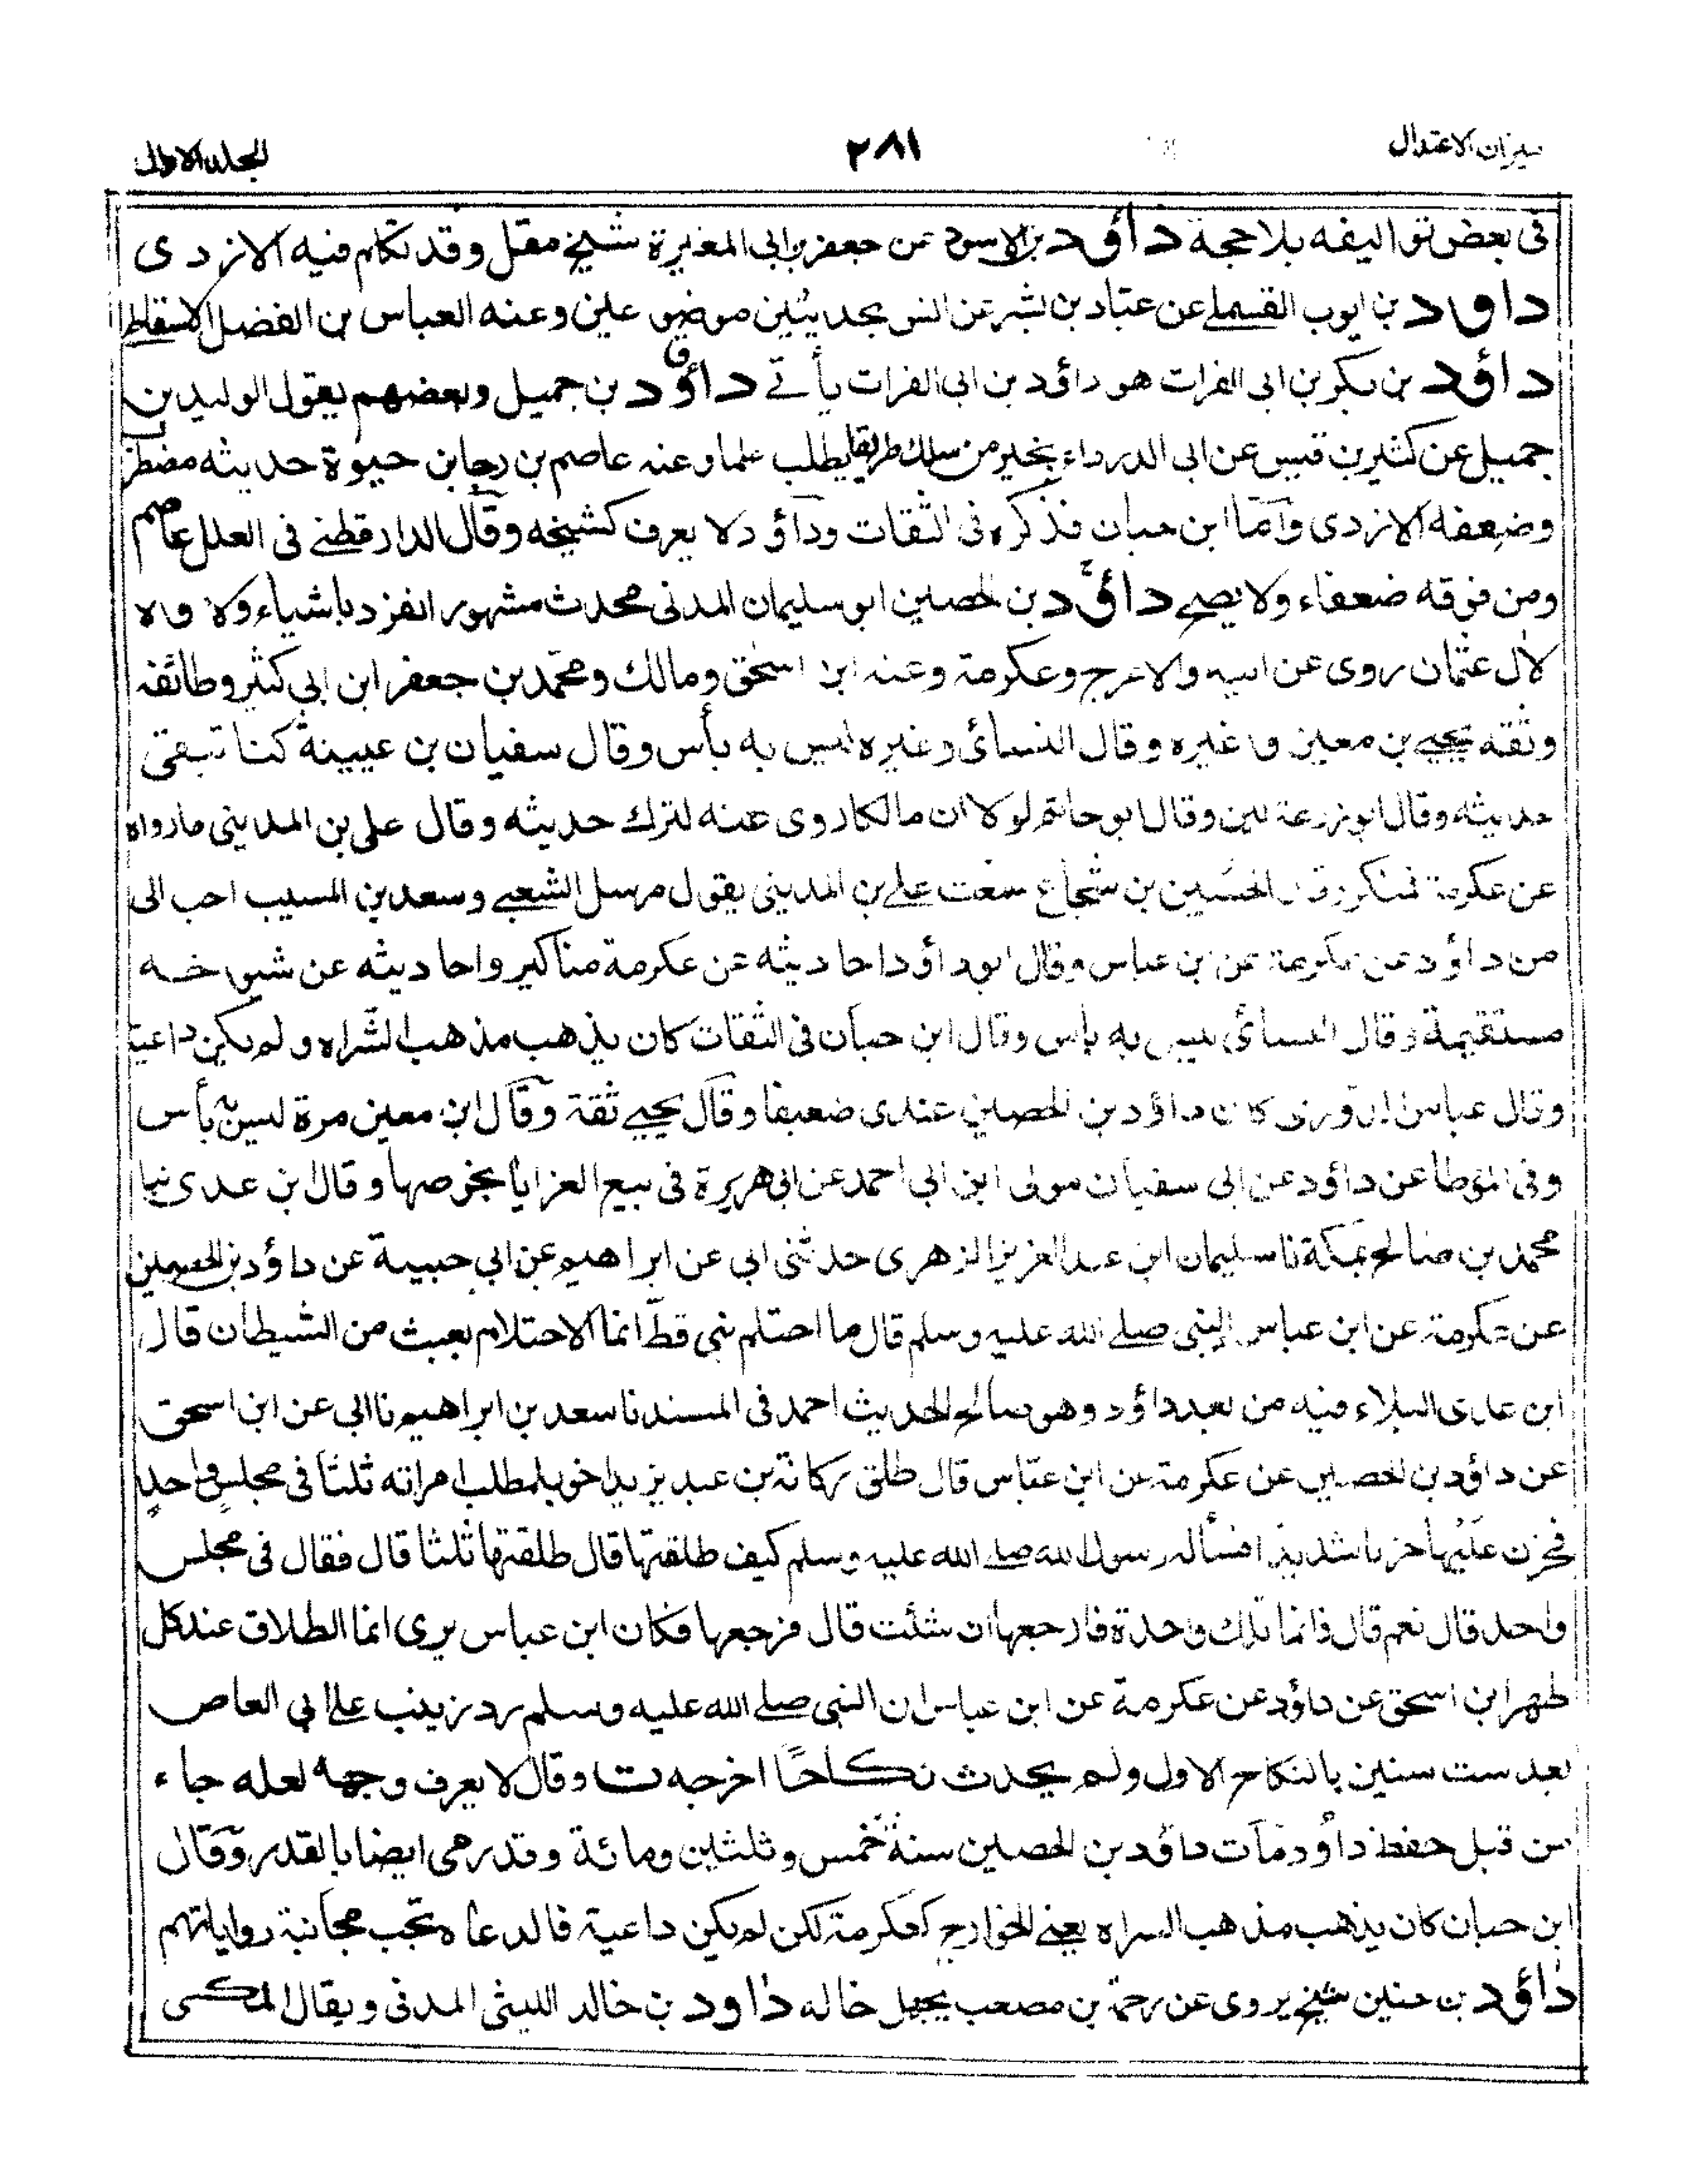 ميزان الاعتدال
٢٨١
المجلد الاول
فى بعض تواليفه بلا حجة داؤد بن الاسود عن جعفر بن ابى المغيرة شيخ مقل وقد تكلم فيه الازدى
داود بن ايوب القسملے عن عباد بن بشر عن انس بحديثين موضوعين وعنه العباس بن الفضل الاسقاطى
داؤد بن بكر بن ابى الفرات هو داؤد بن ابى الفرات يأتے داؤد ق بن جميل وبعضهم يقول الوليد بن
جميل عن كثير بن قيس عن ابى الدرداء بخبر من سلك طريقا يطلب علما وعنه عاصم بن رجا بن حيوة حديثه مضطرب
وضعفه الازدى وآما ابن حبان فذكره فى الثقات وداؤد لا يعرف كشيخه وقال الدارقطنے فى العلل عاصم
ومن فوقه ضعفاء ولا يصح داؤد ع بن الحصين ابو سليمان المدنى محدث مشهور انفرد باشياء ولاوه
لال عثمان روى عن ابيه والاعرج وعكرمة وعنه ابن اسحٰق ومالك ومحمد بن جعفر ابن ابى كثير وطائفه
وثقه يحيے بن معين وغيره وقال النسائى وغيره ليس به بأس وقال سفيان بن عيينة كنا نتقى
حديثه وقال ابو زرعة لين وقال ابو حاتم لولا ان مالكا روى عنه لترك حديثه وقال على بن المدينى مارواه
عن عكرمة فمنكر وقال الحسين بن شجاع سمعت علے بن المدينى يقول مرسل الشعبے وسعد بن المسيب احب الى
من داؤد عن عكرمة عن بن عباس وقال ابو داؤد احاديثه عن عكرمة مناكير واحاديثه عن شيوخه
مستقيمة وقال النسائى ليس به باس وقال ابن حبان فى الثقات كان يذهب مذهب الشراه ولم يكن داعية
وقال عباس الدورى كان داؤد بن الحصين عندى ضعيفا وقال يحيے ثقة وقال ابن معين مرة ليس به بأس
وفى الموطأ عن داؤد عن ابى سفيان مولى ابن ابى احمد عن ابى هريرة فى بيع العرايا بخرصها وقال ابن عدى نبا
محمد بن صالح بمكة نا سليمان ابن عبد العزيز الزهرى حدثنى ابى عن ابراهيم عن ابى حبيبة عن داؤد بن الحصين
عن عكرمة عن ابن عباس النبى صلے الله عليه وسلم قال ما احتلم نبى قط انما الاحتلام بعبث من الشيطان قال
ابن عدى البلاء فيه من بعد داؤد وهو صالح الحديث احمد فى المسند نا سعد بن ابراهيم نا ابى عن ابن اسحق
عن داؤد بن الحصين عن عكرمة عن ابن عباس قال طلق ركانة بن عبد يزيد اخو بلمطلب امراته ثلثا فى مجلس واحد
فحزن عليها حزنا شديدا فسأله رسول الله صلے الله عليه وسلم كيف طلقتها قال طلقتها ثلثا قال فقال فى مجلس
واحد قال نعم قال فانما تلك واحدة فارجعها ان شئت قال فرجعها فكان ابن عباس يرى انما الطلاق عند كل
طهر ابن اسحق عن داؤد عن عكرمة عن ابن عباس ان النبى صلے الله عليه وسلم رد زينب علے ابى العاص
بعد ست سنين بالنكاح الاول ولم يحدث نكاحا اخرجه ت وقال لا يعرف وجهه لعله جاء
من قبل حفظ داؤد مات داؤد بن الحصين سنة خمس وثلثين ومائة وقد رمى ايضا بالقدر وقال
ابن حبان كان يذهب مذهب السراه يعنے الخوارج كعكرمة لكن لم يكن داعية فالدعاه تجب مجانبة رواياتهم
داؤد بن حنين شيخ يروى عن رحمة بن مصعب يجهل خاله داود بن خالد الليثى المدنى ويقال المكى